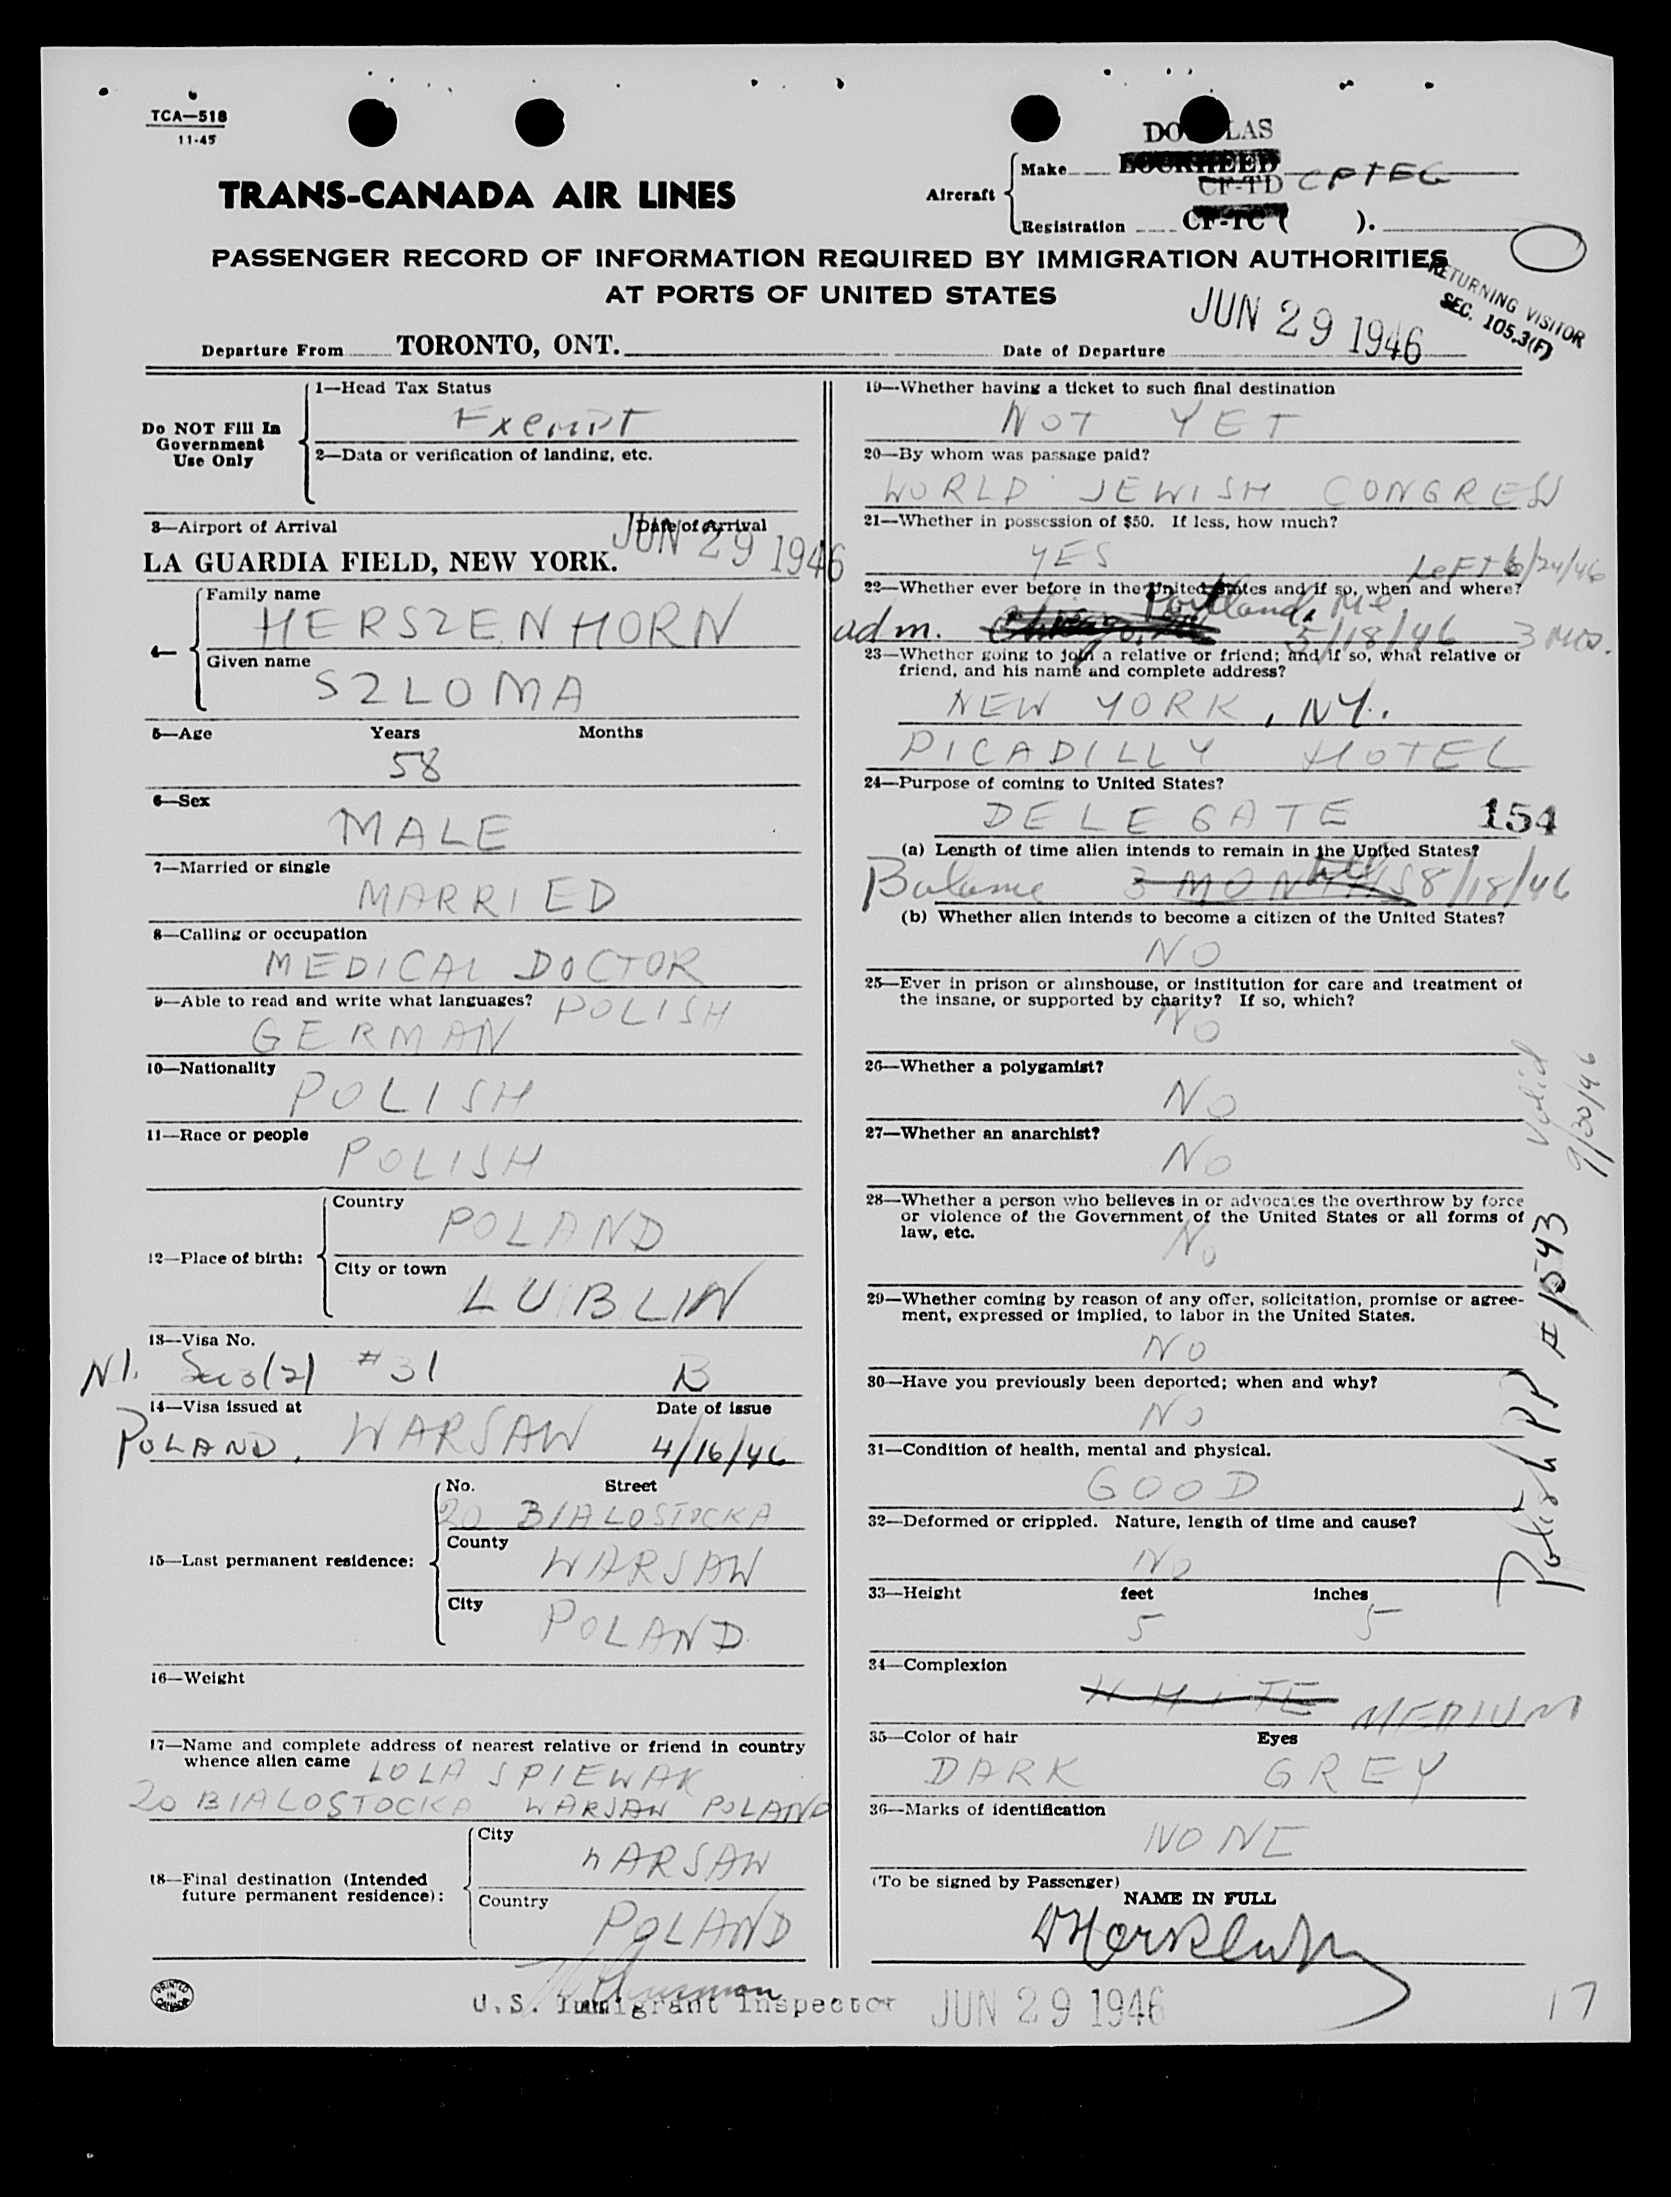 TCA—518
11-45
TRANS-CANADA AIR LINES
DOUGLAS
Aircraft
Make LOCKHEED
CF-TD CFTEG
Registration CF-TC ( ).
PASSENGER RECORD OF INFORMATION REQUIRED BY IMMIGRATION AUTHORITIES
AT PORTS OF UNITED STATES
RETURNING VISITOR
SEC. 105.3(F)
Departure From TORONTO, ONT.
Date of Departure JUN 29 1946
Do NOT Fill In
Government
Use Only
1—Head Tax Status
Exempt
2—Data or verification of landing, etc.
3—Airport of Arrival
Date of Arrival
LA GUARDIA FIELD, NEW YORK.
JUN 29 1946
4—
Family name
HERSZENHORN
Given name
SZLOMA
5—Age Years Months
58
6—Sex
MALE
7—Married or single
MARRIED
8—Calling or occupation
MEDICAL DOCTOR
9—Able to read and write what languages? POLISH
GERMAN
10—Nationality
POLISH
11—Race or people
POLISH
12—Place of birth:
Country
POLAND
City or town
LUBLIN
13—Visa No.
N.I. Sec 3(2) #31 B
14—Visa issued at Date of issue
POLAND, WARSAW 4/16/46
15—Last permanent residence:
No. Street
20 BIALOSTOCKA
County
WARSAW
City
POLAND
16—Weight
17—Name and complete address of nearest relative or friend in country
whence alien came LOLA SPIEWAK
20 BIALOSTOCKA WARSAW POLAND
18—Final destination (Intended
future permanent residence):
City
WARSAW
Country
POLAND
19—Whether having a ticket to such final destination
NOT YET
20—By whom was passage paid?
WORLD JEWISH CONGRESS
21—Whether in possession of $50. If less, how much?
YES
LEFT 6/24/46
22—Whether ever before in the United States and if so, when and where?
adm. Portland, Me 5/18/46 3 MOS.
23—Whether going to join a relative or friend; and if so, what relative or
friend, and his name and complete address?
NEW YORK, NY.
PICADILLY HOTEL
24—Purpose of coming to United States?
DELEGATE
154
(a) Length of time alien intends to remain in the United States?
Balance 3 MONTHS till 8/18/46
(b) Whether alien intends to become a citizen of the United States?
NO
25—Ever in prison or almshouse, or institution for care and treatment of
the insane, or supported by charity? If so, which?
NO
26—Whether a polygamist?
NO
27—Whether an anarchist?
NO
28—Whether a person who believes in or advocates the overthrow by force
or violence of the Government of the United States or all forms of
law, etc.
NO
29—Whether coming by reason of any offer, solicitation, promise or agree-
ment, expressed or implied, to labor in the United States.
NO
30—Have you previously been deported; when and why?
NO
31—Condition of health, mental and physical.
GOOD
32—Deformed or crippled. Nature, length of time and cause?
NO
33—Height feet inches
5 5
34—Complexion
WHITE MEDIUM
35—Color of hair Eyes
DARK GREY
36—Marks of identification
NONE
(To be signed by Passenger)
NAME IN FULL
Polish PP # 1543
Valid
9/30/46
PRINTED
IN
CANADA
U.S. Immigrant Inspector JUN 29 1946
17